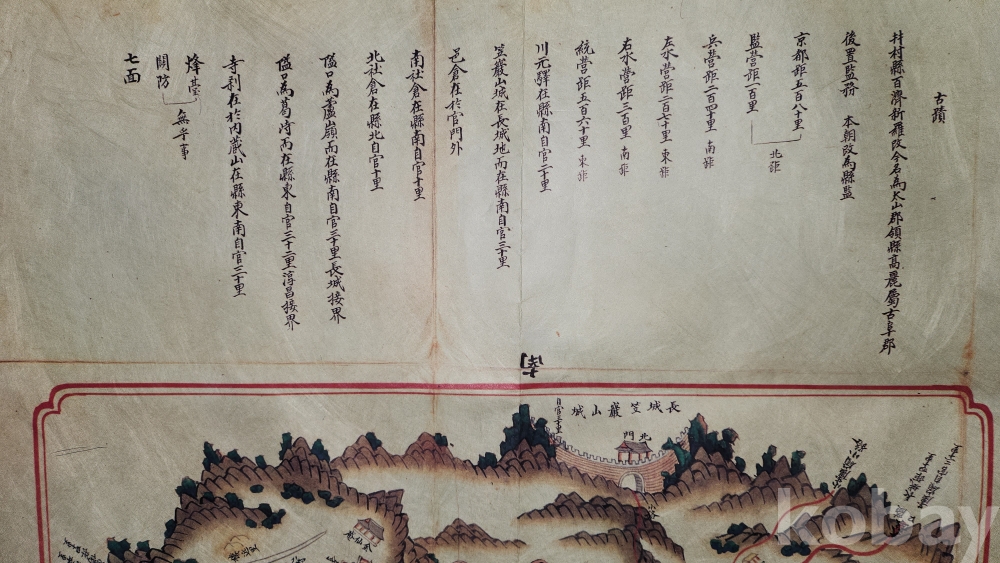 古蹟
井村縣百濟新羅改今名為太山郡領縣高麗屬古阜郡
後置監務 本朝改為縣監
京都距五百八十里
監營距一百里
北距
兵營距二百四十里 南距
左水營距二百七十里 東距
右水營距三百里 南距
統營距五百六十里 東距
川元驛在縣南自官二十里
笠巖山城在長城地而在縣南自官三十里
邑倉在於官門外
南社倉在縣南自官十里
北社倉在縣北自官十里
隘口為蘆嶺而在縣南自官三十里長城接界
隘口為葛峙而在縣東自官三十二里淳昌接界
寺刹在於內藏山在縣東南自官三十里
烽臺
關防
無乎事
七面
南
長城笠巖山城
自官三十里
北門
kobay